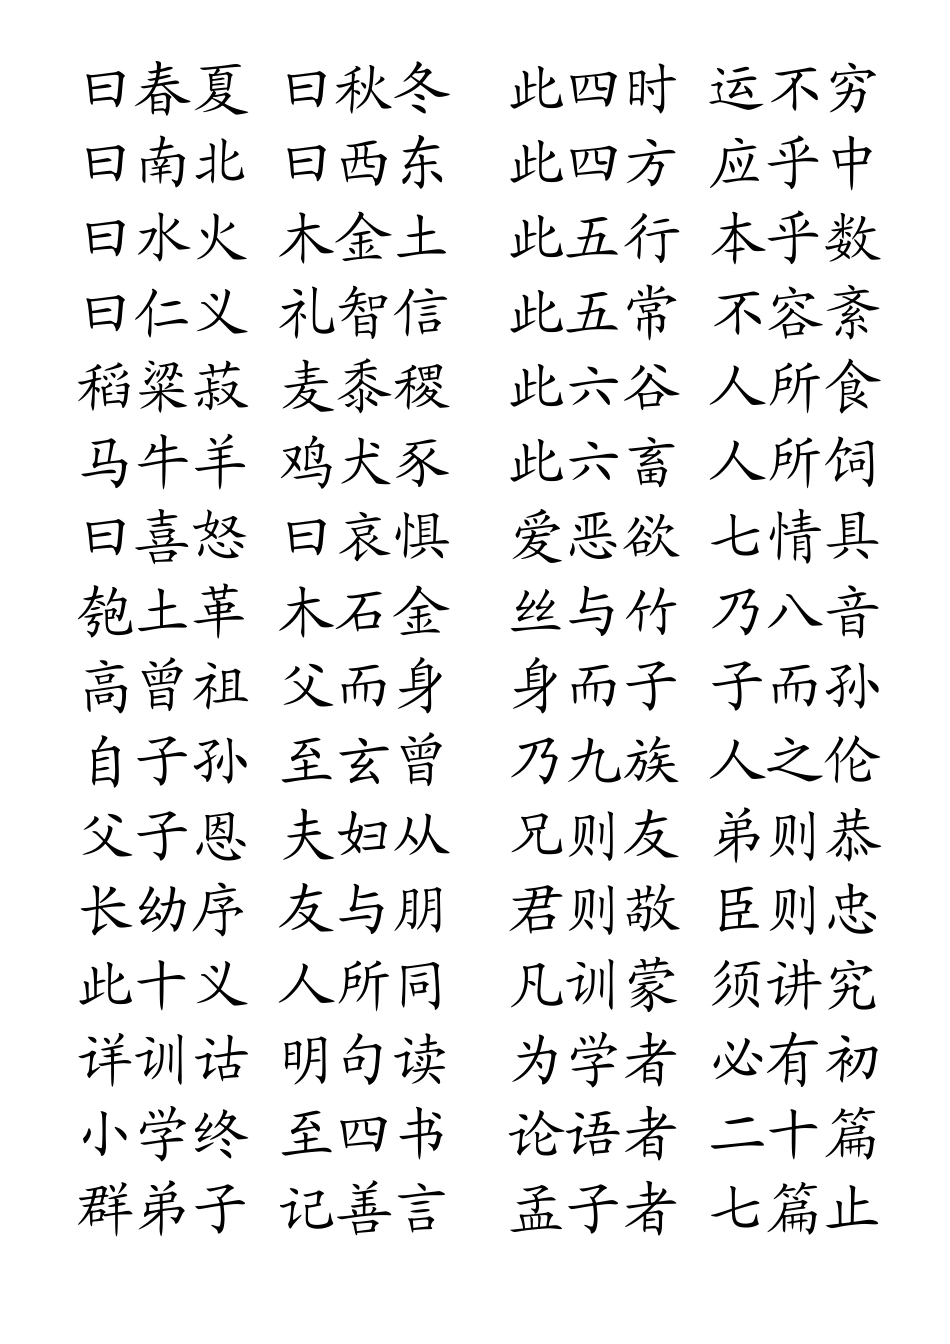 曰春夏 曰秋冬 此四时 运不穷
曰南北 曰西东 此四方 应乎中
曰水火 木金土 此五行 本乎数
曰仁义 礼智信 此五常 不容紊
稻粱菽 麦黍稷 此六谷 人所食
马牛羊 鸡犬豕 此六畜 人所饲
曰喜怒 曰哀惧 爱恶欲 七情具
匏土革 木石金 丝与竹 乃八音
高曾祖 父而身 身而子 子而孙
自子孙 至玄曾 乃九族 人之伦
父子恩 夫妇从 兄则友 弟则恭
长幼序 友与朋 君则敬 臣则忠
此十义 人所同 凡训蒙 须讲究
详训诂 明句读 为学者 必有初
小学终 至四书 论语者 二十篇
群弟子 记善言 孟子者 七篇止